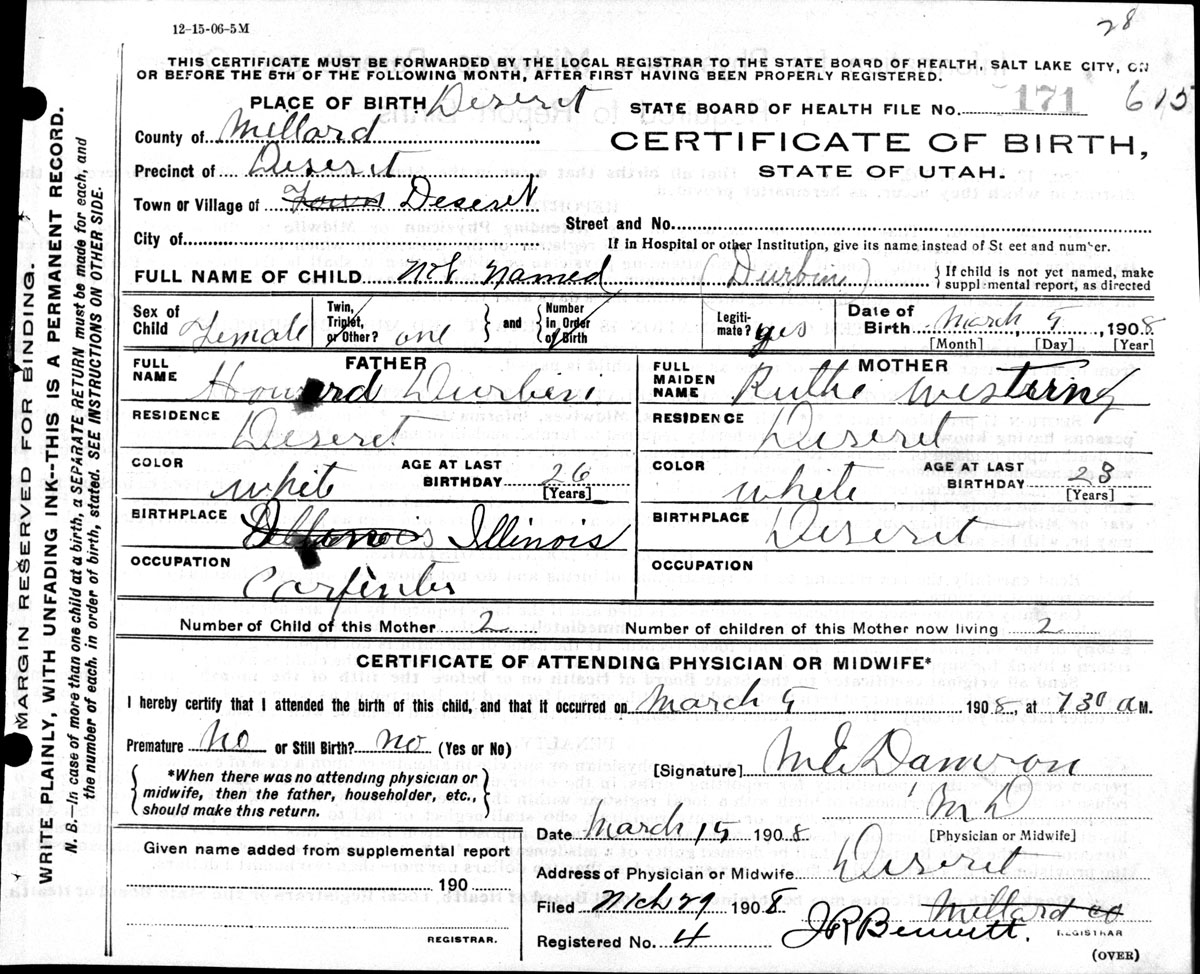 12-15-06-5M
28
THIS CERTIFICATE MUST BE FORWARDED BY THE LOCAL REGISTRAR TO THE STATE BOARD OF HEALTH, SALT LAKE CITY, ON
OR BEFORE THE 5TH OF THE FOLLOWING MONTH, AFTER FIRST HAVING BEEN PROPERLY REGISTERED.
PLACE OF BIRTH Deseret
STATE BOARD OF HEALTH FILE No. 171 615
County of Millard
CERTIFICATE OF BIRTH,
Precinct of Deseret
STATE OF UTAH.
Town or Village of Town Deseret
Street and No.
City of
If in Hospital or other Institution, give its name instead of St eet and number.
FULL NAME OF CHILD Not named (Durbin)
{ If child is not yet named, make
supplemental report, as directed
Sex of Child Female
Twin, Triplet, or Other? one } and { Number in Order of Birth
Legiti-mate? yes
Date of Birth March 9, 1908
[Month] [Day] [Year]
FATHER
FULL NAME Howard Durbin
MOTHER
FULL MAIDEN NAME Ruthe Westerng
RESIDENCE Deseret
RESIDENCE Deseret
COLOR white AGE AT LAST BIRTHDAY 26 [Years]
COLOR white AGE AT LAST BIRTHDAY 23 [Years]
BIRTHPLACE Illinois
BIRTHPLACE Deseret
OCCUPATION Carpinter
OCCUPATION
Number of Child of this Mother 2 Number of children of this Mother now living 2
CERTIFICATE OF ATTENDING PHYSICIAN OR MIDWIFE*
I hereby certify that I attended the birth of this child, and that it occurred on March 9 1908, at 730 a M.
Premature? No or Still Birth? no (Yes or No)
{ *When there was no attending physician or
midwife, then the father, householder, etc.,
should make this return. }
[Signature] M E Damron
M D
[Physician or Midwife]
Date March 15 1908
Given name added from supplemental report
Address of Physician or Midwife Deseret
190
Filed Mch 29 1908. Millard co
Registered No. 4 J R Bennett.
REGISTRAR.
REGISTRAR
(OVER)
MARGIN RESERVED FOR BINDING.
WRITE PLAINLY, WITH UNFADING INK--THIS IS A PERMANENT RECORD.
N. B.—In case of more than one child at a birth, a SEPARATE RETURN must be made for each, and
the number of each, in order of birth, stated. SEE INSTRUCTIONS ON OTHER SIDE.